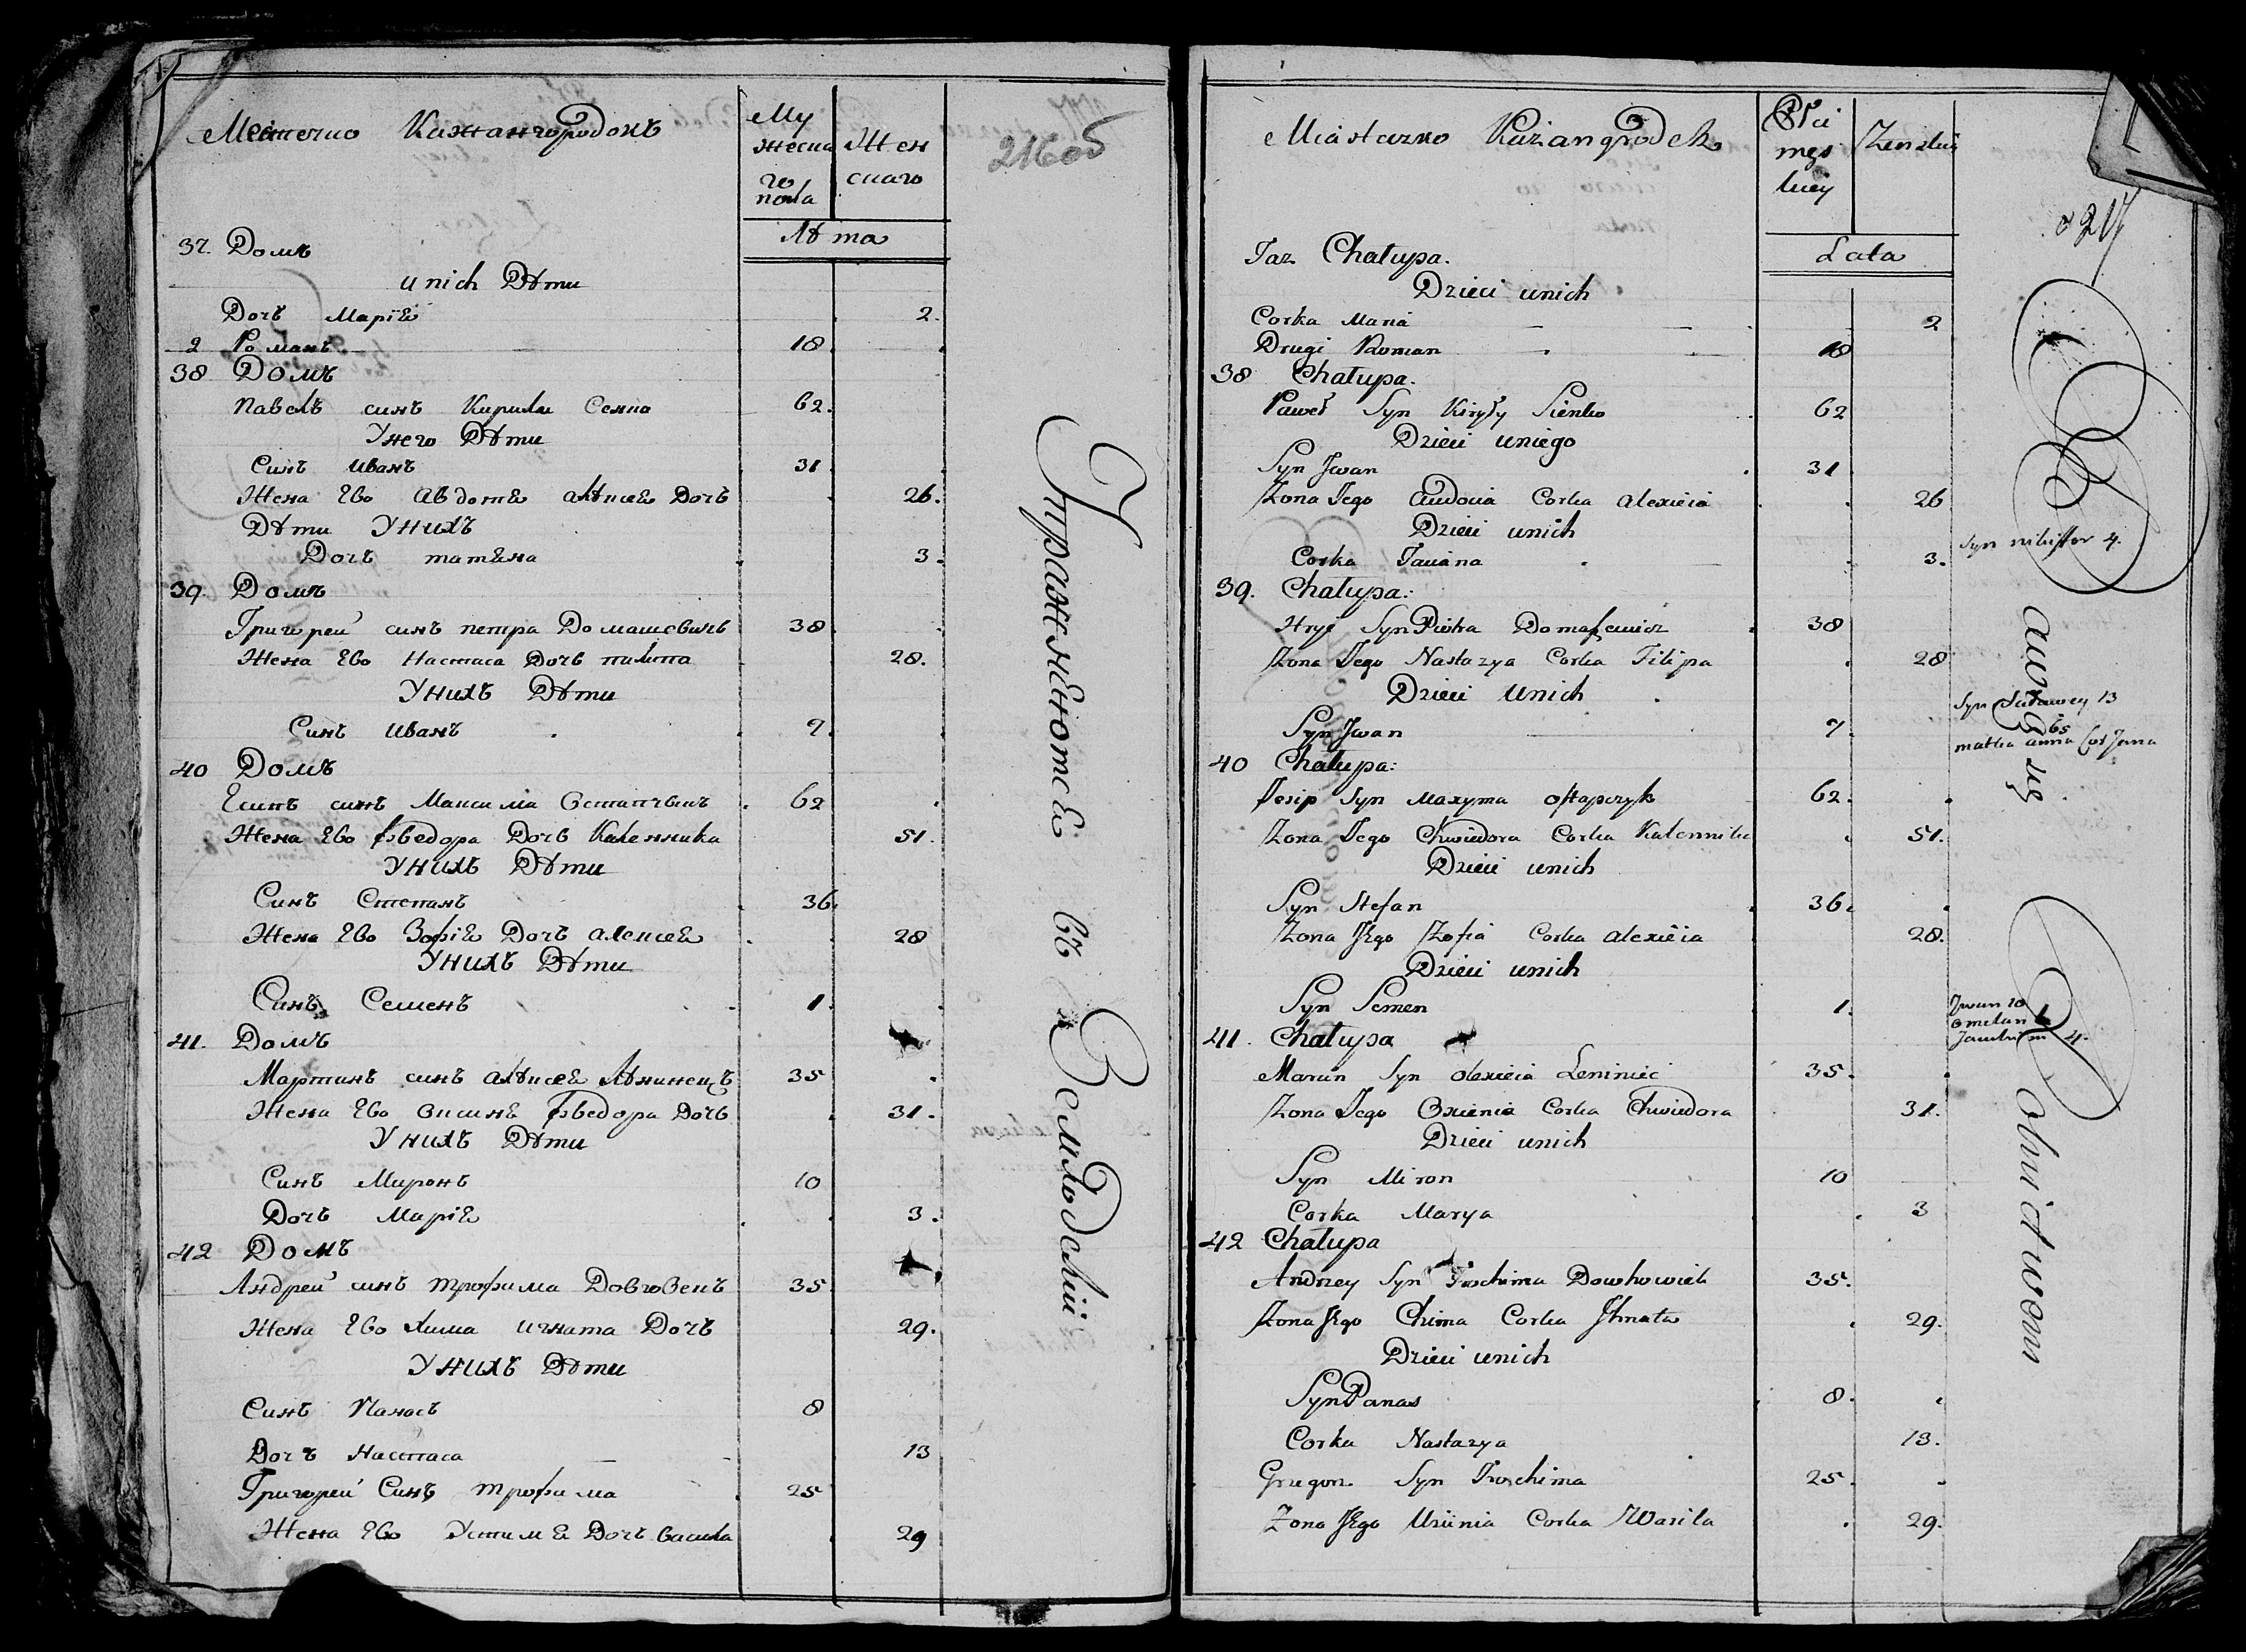 Местечко Кажангородокъ
Мужеска го пола
Женскаго
Лѣта
216 об
37. Домъ
unich Дѣти
Дочъ Маріѣ 2.
2 Романъ 18
38 Домъ
Павелъ синъ Кирилы Сенко 62.
Унего Дѣти
Синъ Иванъ 31
Жена Ево Авдотѣ алѣксеѣ Дочъ 26.
Дѣти Унихъ
Дочъ татѣна 3.
39. Домъ
Григорей синъ петра Домашевичъ 38
Жена Ево Настаса Дочъ пилипа 28.
Унихъ Дѣти
Синъ Иванъ 7.
40 Домъ
Есипъ синъ Максима Остапчыкъ 62
Жена Ево Хведора Дочъ Каленика 51.
Унихъ Дѣти
Синъ Степанъ 36.
Жена Ево Зофіѣ Дочъ алексеѣ 28
Унихъ Дѣти
Синъ Семенъ 1.
41. Домъ
Мартинъ синъ алѣксеѣ Лѣнинецъ 35
Жена Ево Оксинѣ Хведора Дочъ 31.
Унихъ Дѣти
Синъ Миронъ 10
Дочъ Маріѣ 3.
42 Домъ
Андрей синъ трофима Довговекъ 35
Жена Ево хима игната Дочъ 29.
Унихъ Дѣти
Синъ Панасъ 8
Дочъ Настаса 13
Григорей Синъ трофима 25
Жена Ево Устимѣ Дочъ васила 29
въ
Miastaczko Kazangrodek
Płci męs kiey
Zenskiey
Lata
217
Taz Chałupa.
Dzieci unich
Corka Maria 2
Drugi Roman 18
38 Chałupa.
Paweł Syn Kiryły Sienko 62
Dzieci uniego
Syn Jwan 31
Zona Jego Audocia Corka alexieia 26
Dzieci unich
Syn nikifor 4.
Corka Taciana 3.
39. Chałupa.
Hryć Syn Piotra Domaszewicz 38
Zona Jego Nastazya Corka Filipa 28
Dzieci unich
Syn Jwan 7.
matka anna Cor Jwana 65
40 Chałupa:
Jesip Syn Maxyma Ostapczyk 62.
Zona Jego Chwiedora Corka Kalennika 51.
Dzieci unich
Syn Stefan 36.
Zona Jego Zofia Corka alexieia 28.
Dzieci unich
Syn Semen 1.
Jwan 10
omelan
41. Chałupa
Marcin Syn alexieia Leniniec 35.
Zona Jego Oxienia Corka Chwiedora 31.
Dzieci unich
Syn Miron 10
Corka Marya 3
42 Chałupa
Andrzey Syn Trochima Dowhowiek 35.
Zona Jego Chima Corka Jhnata 29.
Dzieci unich
Syn Panas 8.
Corka Nastazya 13.
Gregorz Syn Trochima 25.
Zona Jego Usiinia Corka Wasila 29.